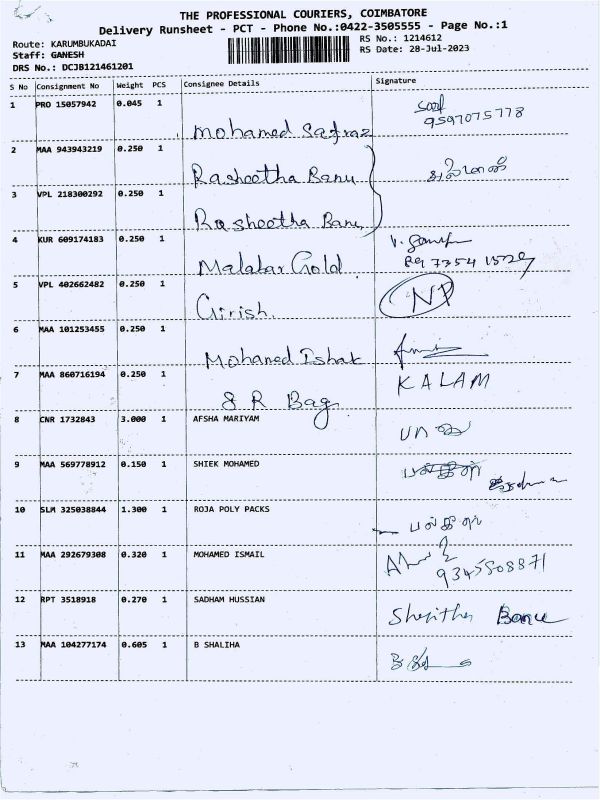 THE PROFESSIONAL COURIERS, COIMBATORE
Delivery Runsheet - PCT - Phone No.:0422-3505555 - Page No.:1
Route: KARUMBUKADAI
RS No.: 1214612
Staff: GANESH
RS Date: 28-Jul-2023
DRS No.: DCJB121461201
S No Consignment No Weight PCS Consignee Details Signature
1 PRO 15057942 0.045 1 Mohamed Safraz
9597075778
2 MAA 943943219 0.250 1 Rasheetha Banu
3 VPL 218300292 0.250 1 Rasheetha Banu
4 KUR 609174183 0.250 1 Malabar Gold
5 VPL 402662482 0.250 1 Girish NP
6 MAA 101253455 0.250 1 Mohamed Ishak
7 MAA 860716194 0.250 1 S R Bag KALAM
8 CNR 1732843 3.000 1 AFSHA MARIYAM
9 MAA 569778912 0.150 1 SHIEK MOHAMED
10 SLM 325038844 1.300 1 ROJA POLY PACKS
11 MAA 292679308 0.320 1 MOHAMED ISMAIL
12 RPT 3518918 0.270 1 SADHAM HUSSIAN Sheritha Banu
13 MAA 104277174 0.605 1 B SHALIHA